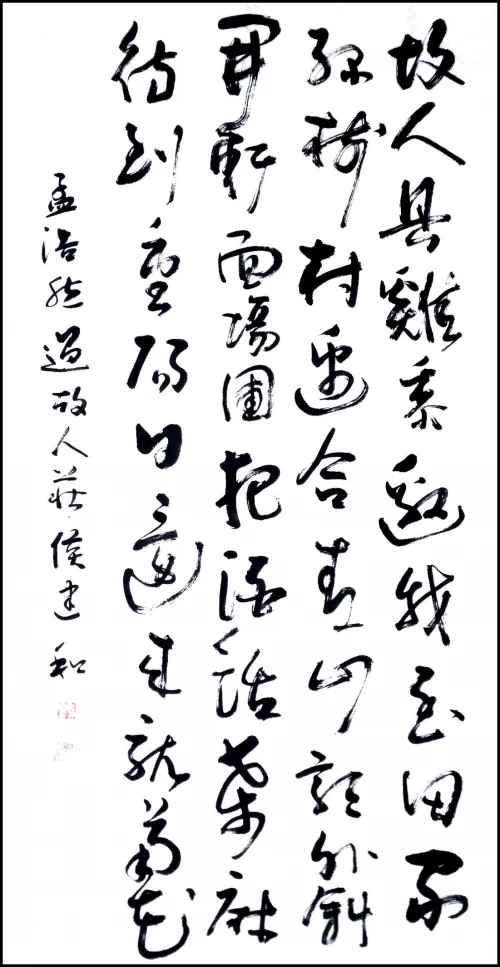 故人具雞黍邀我至田家
綠樹村邊合青山郭外斜
開軒面場圃把酒話桑麻
待到重陽日還來就菊花
孟浩然過故人莊侯建和